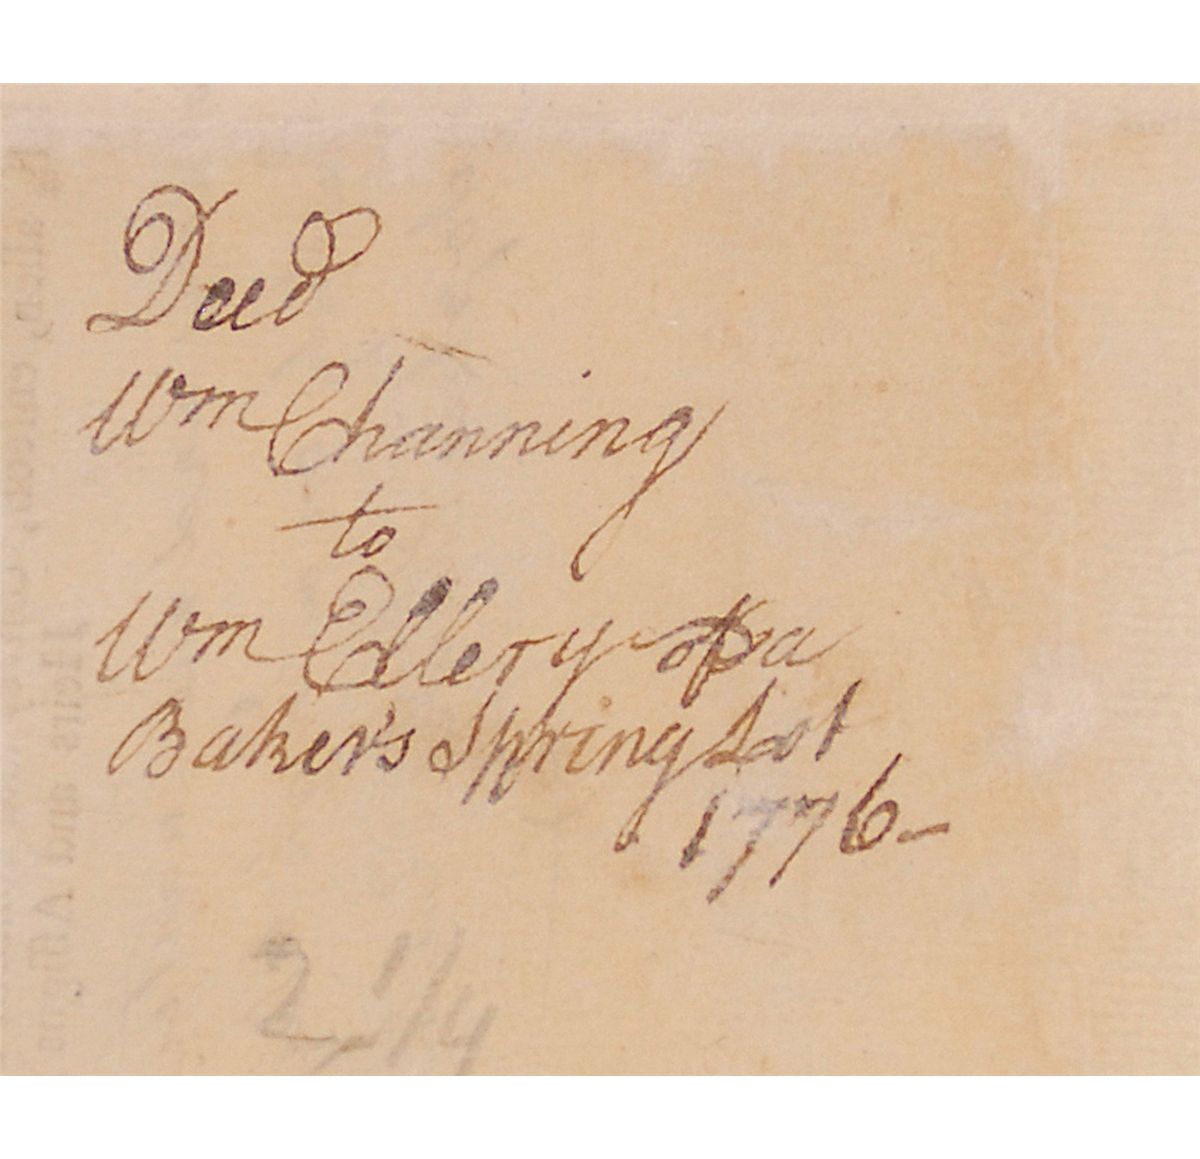 Deed
Wm Channing
to
Wm Ellery of a
Baker's Spring Lot
1776-
2 1/4